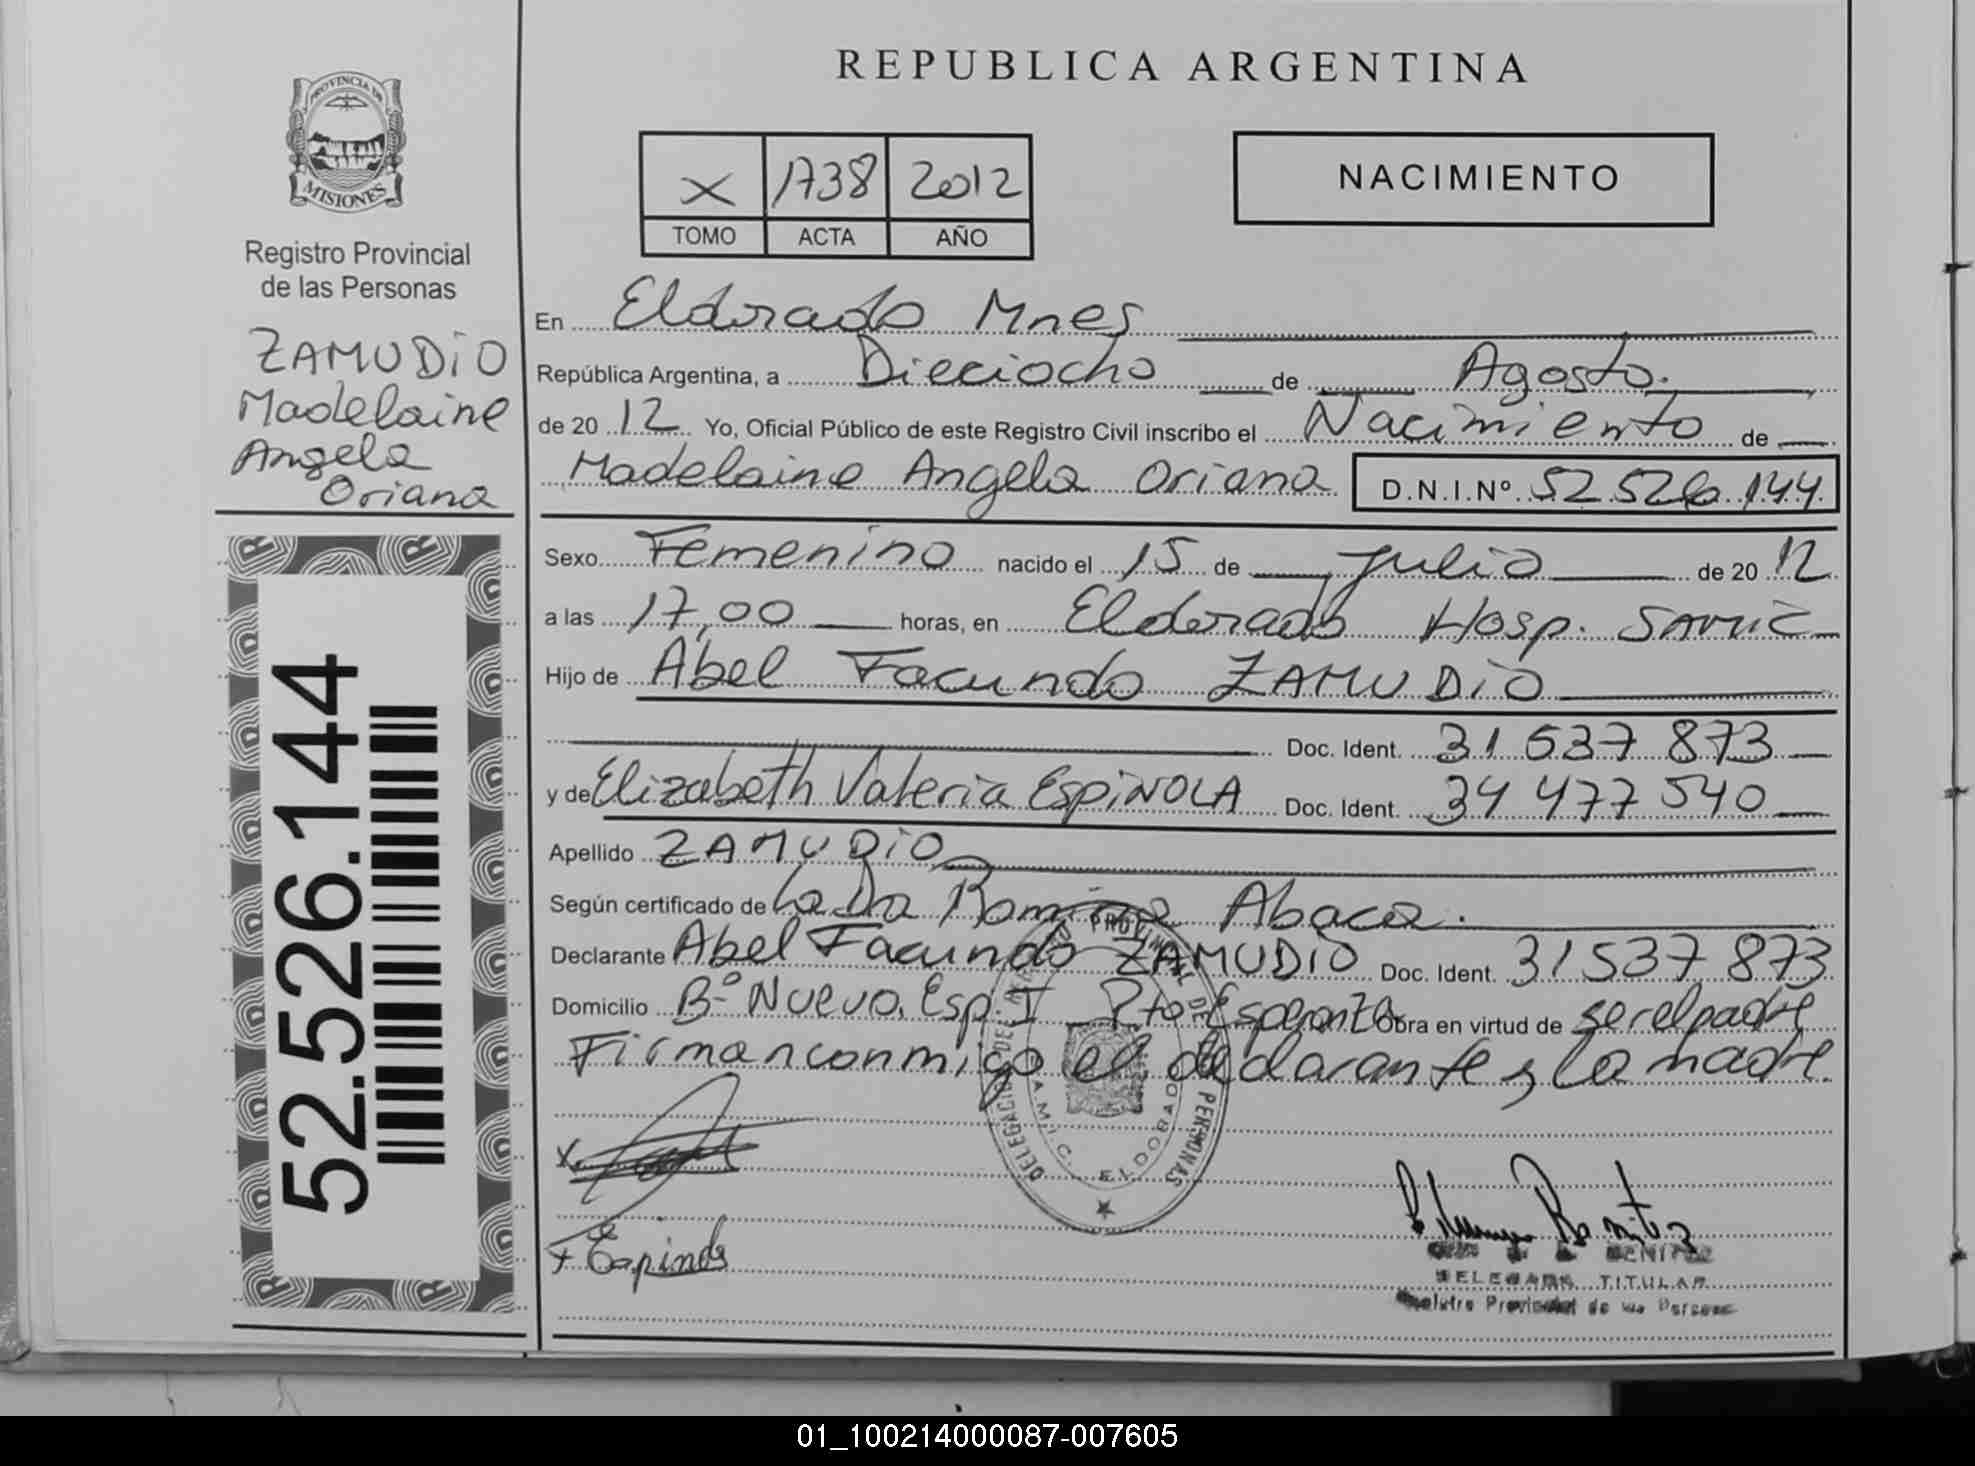 PROVINCIA DE
MISIONES
Registro Provincial
de las Personas
ZAMUDIO
Madelaine
Angela
Oriana
52.526.144
REPUBLICA ARGENTINA
X 1738 2012
TOMO ACTA AÑO
NACIMIENTO
En Eldorado Mnes
República Argentina, a Dieciocho de Agosto.
de 20 12 Yo, Oficial Público de este Registro Civil inscribo el Nacimiento de
Madelaine Angela Oriana D.N.I.Nº 52.526.144
Sexo Femenino nacido el 15 de Julio de 20 12
a las 17,00 horas, en Eldorado Hosp. SAMIC
Hijo de Abel Facundo ZAMUDIO
Doc. Ident. 31 537 873
y de Elizabeth Valeria ESPINOLA Doc. Ident. 34 477 540
Apellido ZAMUDIO
Según certificado de La Dra Romina Abaca.
Declarante Abel Facundo ZAMUDIO Doc. Ident. 31 537 873
Domicilio Bº Nuevo. Esp. I Pto Esperanza Obra en virtud de ser el padre
Firman conmigo el declarante y la madre
DELEGACION DEL REGISTRO PROVINCIAL DE PERSONAS
S.A.M.I.C. ELDORADO
X
X Espinola
BENITEZ
DELEGADA TITULAR
Registro Provincial de las Personas
01_100214000087-007605